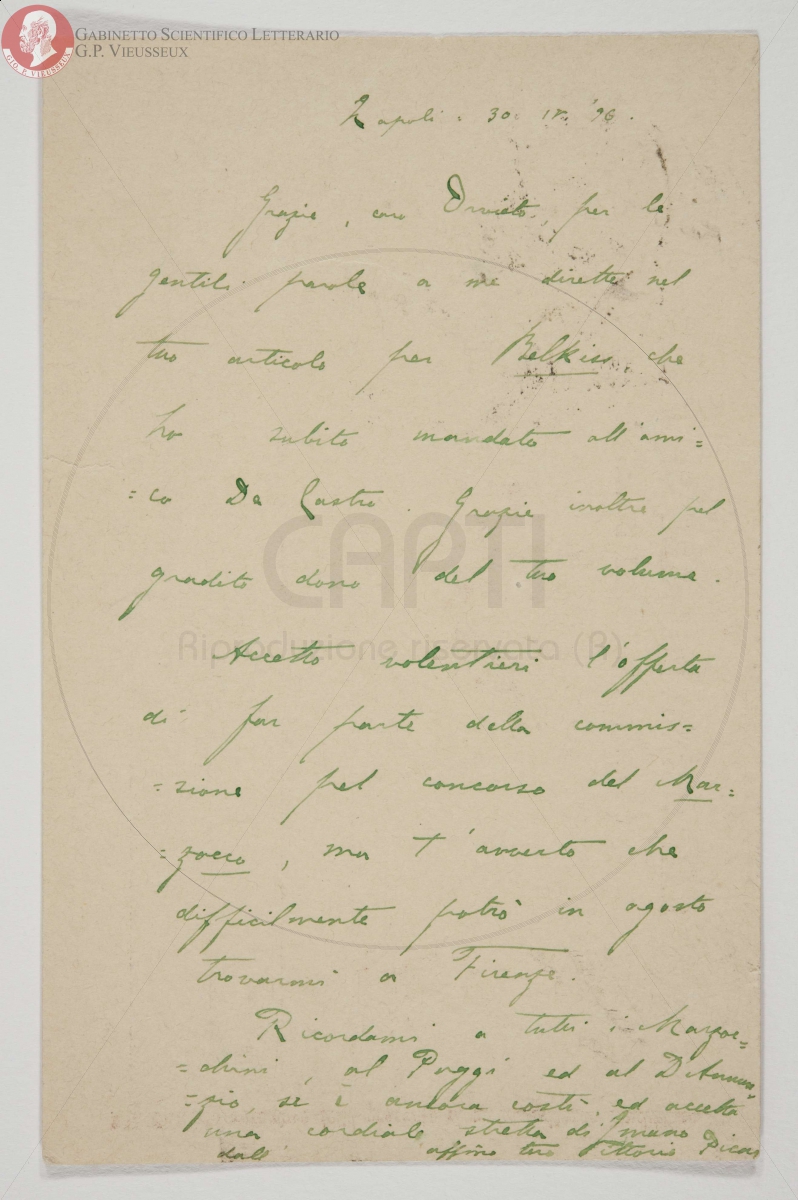 GABINETTO SCIENTIFICO LETTERARIO
G.P. VIEUSSEUX
GIO. P. VIEUSSEUX
Napoli = 30 IV. '96.
Grazie, caro Orvieto, per le
gentili parole a me dirette nel
tuo articolo per Belkiss che
ho subito mandato all'ami=
=co De Castro. Grazie inoltre pel
gradito dono del tuo volume.
CAPTI
Riproduzione riservata (R)
Accetto volentieri l'offerta
di far parte della commis=
=sione pel concorso del Mar=
=zocco, ma t'avverto che
difficilmente potrò in agosto
trovarmi a Firenze.
Ricordami a tutti i Marzoc=
=chini, al Poggi ed al D'Annun=
=zio, se è ancora costì, ed accetta
una cordiale stretta di mano
dall' affmo tuo Vittorio Pica